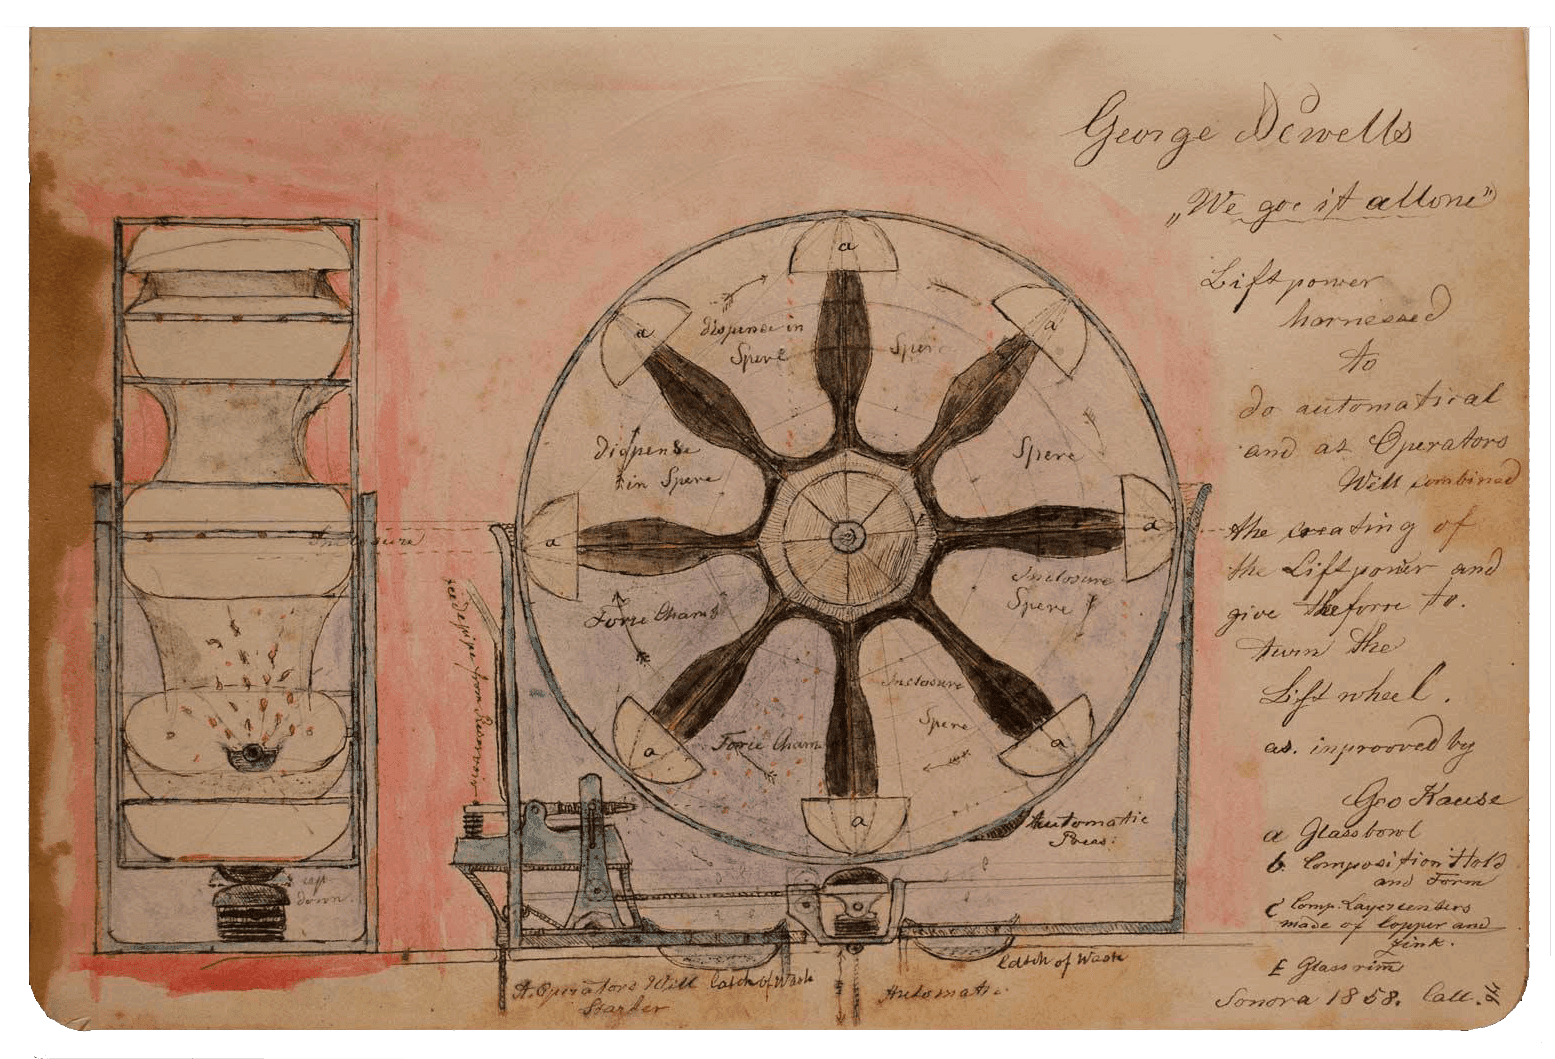 George Newells
„We goe it allone"
Lift power
harnessed
to
do automatical
and at Operators
Will combined
the creating of
the Liftpower and
give the forse to.
turn the
Lift wheel.
as. inprooved by
Geo Kause
a Glassbowl
b Composition Hold
and Form
C Comp. Layercenters
made of Copper and
Zink.
E Glassrim
Sonora 1858. Call.
a
a
a
a
a
a
a
a
dispense in
Spere
Spere
Dispense
in Spere
Spere
Inclosure
Spere
Force Chamb
Inclosure
Spere
Force Cham
Automatic
Press.
feed pipe from Reservoir
cap
down.
At Operators Will
Starter
Catch of Wash
Automatic
Catch of Wash